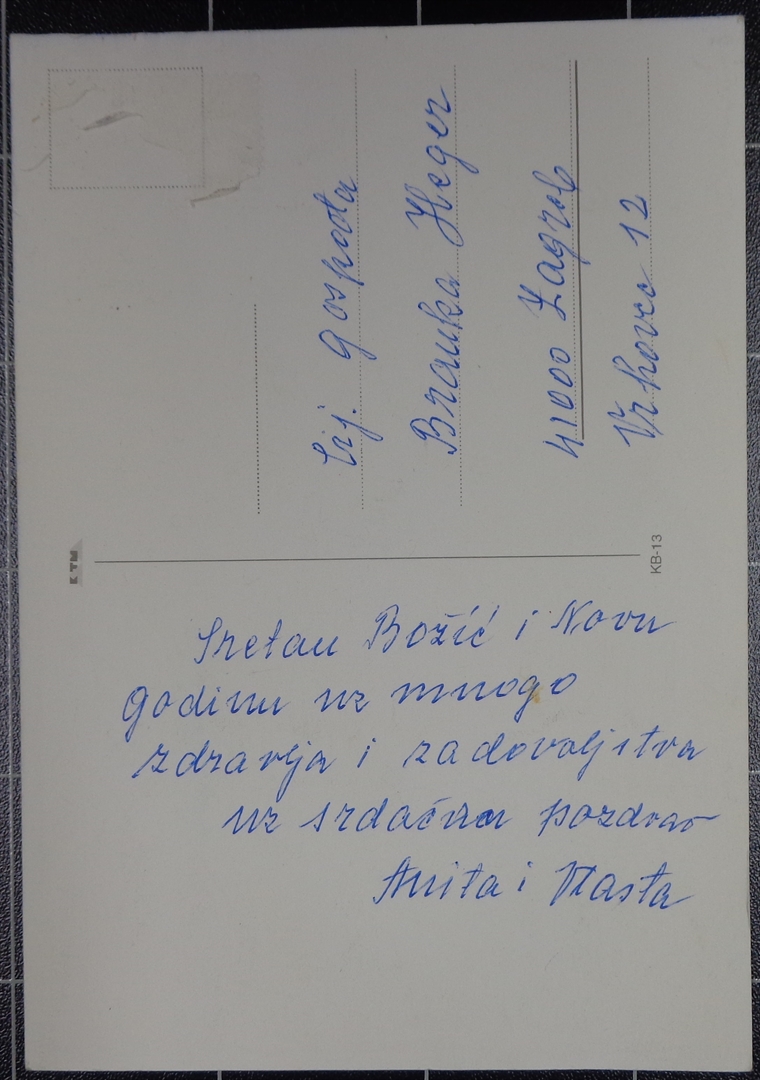 Sretan Božić i Novu
godinu uz mnogo
zdravlja i zadovoljstva
uz srdačan pozdrav
Anita i Vlasta
Cij. gospođa
Branka Heger
41000 Zagreb
Vrhovec 12
KTM
KB-13